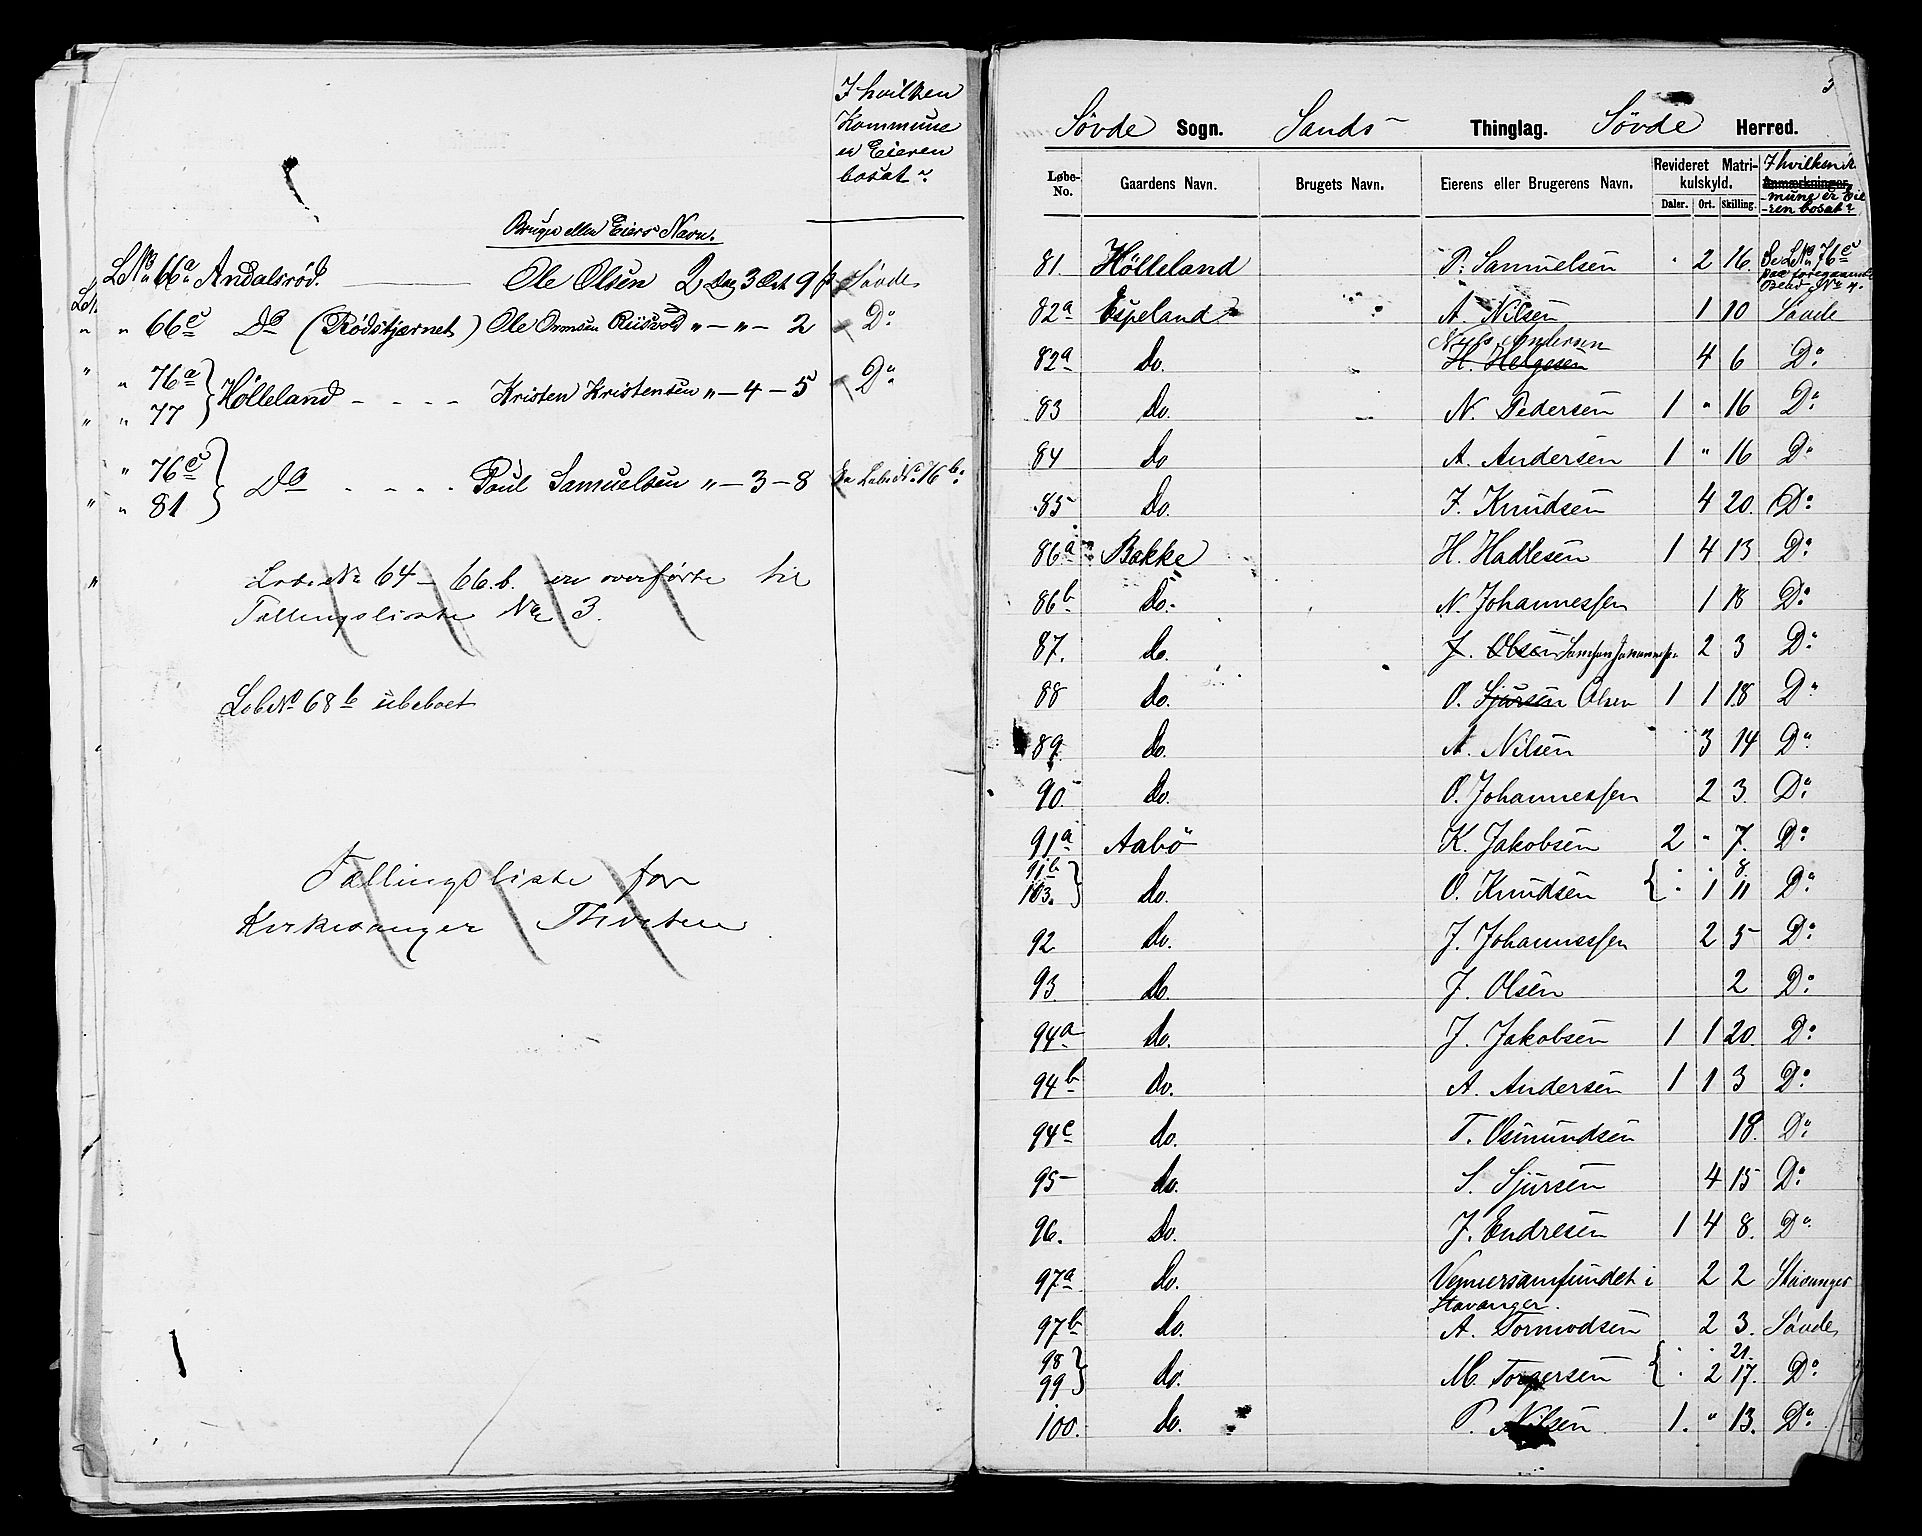 I hvilken
Kommune
er Eieren
bosat?
Bruger eller Eiers Navn.
L.No 66a Andalsrød. Ole Olsen 2 Daler 3 Ort 9 ß Søvde
" 66c Do (Rødstjernet) Ole Ormsen Riisvold " - " - 2 Do
" 76a } Hølleland - - - - Kristen Kristensen " - 4 - 5 Do
" 77
" 76c } Do - - - - Poul Samuelsen " - 3 - 8 Se LøbeNo 76b
" 81
Løbe No 64 - 66.b. er overførte til
Tællingsliste No 3.
LøbNo 68b ubeboet
Tællingsliste for
Kirkesanger
3
Søvde Sogn. Sands Thinglag. Søvde Herred.
Løbe-No. Gaardens Navn. Brugets Navn. Eierens eller Brugerens Navn. Revideret Matrikulskyld. Daler. Ort. Skilling. Anmærkninger. I hvilken Kommune er Eieren bosat?
81 Hølleland P. Samuelsen " 2 16. Se LNo 76c paa foregaaende
82a Espeland A. Nilsen 1 10 Søvde
82a Do. H. Helgesen Nils Andersen 4 6 Do
83 Do. N. Pedersen 1 " 16 Do
84 Do A. Andersen 1 " 16 Do
85 Do. J. Knudsen 4 20. Do
86a Bakke H. Hadlesen 1 4 13 Do
86b Do. N. Johannessen 1 18 Do
87. Do. J. Olsen Samson Johannessen 2 3 Do
88 Do. O. Sjursen Olsen 1 1 18 Do
89. Do. A. Nilsen 3 14 Do
90. Do. O. Johannessen 2 3. Do
91a Aabø K. Jakobsen 2 " 7. Do
91b } " " 8.
103. } Do. O. Knudsen { " 1 11 Do
92 Do. J. Johannessen 2 5 Do
93 Do. J. Olsen 2 Do
94a Do. J. Jakobsen 1 1 20. Do
94b Do. A. Andersen 1 1 3 Do
94c Do. T. Osmundsen 18. Do
95 Do. S. Sjursen 4 15 Do
96. Do. J. Endresen 1 4 8. Do
97a Do. Vennersamfundet i Stavanger. 2 2 Stavanger
97b Do. A. Tormodsen 2 3. Søvde
98 } " " 21.
99 } Do. M. Torgersen { " 2 17. Do
100. Do. P. Nilsen 1. " 13. Do